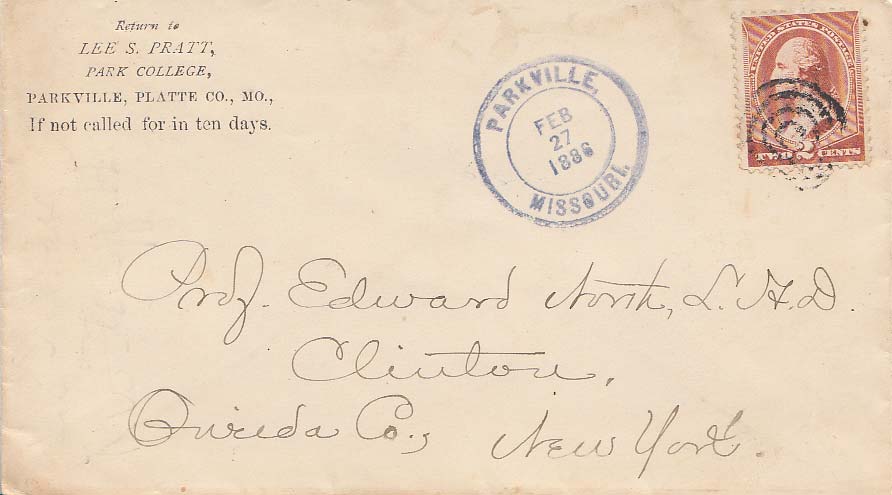 Return to
LEE S. PRATT,
PARK COLLEGE,
PARKVILLE, PLATTE CO., MO.,
If not called for in ten days.
PARKVILLE,
FEB
27
1886
MISSOURI.
UNITED STATES POSTAGE
TWO 2 CENTS
Prof. Edward North, L.H.D.
Clinton,
Oneida Co., New York.